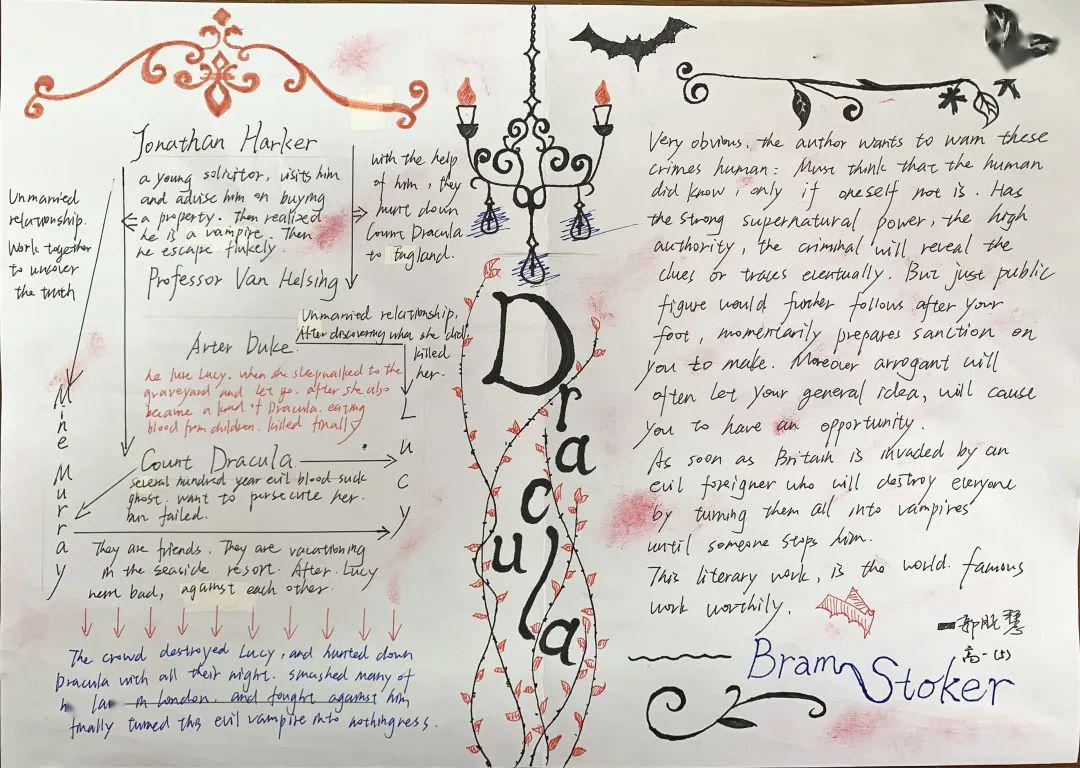 Jonathan Harker
a young solicitor, visits him
and advise him on buying
a property. Then realized
he is a vampire. Then
he escape flukely.
Unmarried
relationship.
Work together
to uncover
the truth
with the help
of him, they
hunt down
Count Dracula
to England.
Professor Van Helsing
Unmarried relationship.
After discovering what she did
killed
her.
Arter Duke
he luve Lucy. when she sleepwalked to the
graveyard and let go. after she also
became a kind of Dracula. eating
blood from children. killed finally
Mine Murray
Lucy
Count Dracula
several hundred year evil blood suck
ghost. want to persecute her.
failed.
They are friends. They are vacationing
in the seaside resort. After Lucy
bad, against each other.
The crowd destroyed Lucy, and hunted down
Dracula with all their might. smashed many of
in London. and fought against him
finally turned this evil vampire into nothingness.
Dracula
Very obvious, the author wants to warn these
crimes human: Must think that the human
did know, only if oneself not is. Has
the strong supernatural power, the high
authority, the criminal will reveal the
clues or traces eventually. But just public
figure would further follows after your
foot, momentarily prepares sanction on
you to make. Moreover arrogant will
often let your general idea, will cause
you to have an opportunity.
As soon as Britain is invaded by an
evil foreigner who will destroy everyone
by turning them all into vampires
until someone stops him.
This literary work, is the world famous
work worthily.
高一(5)
Bram Stoker